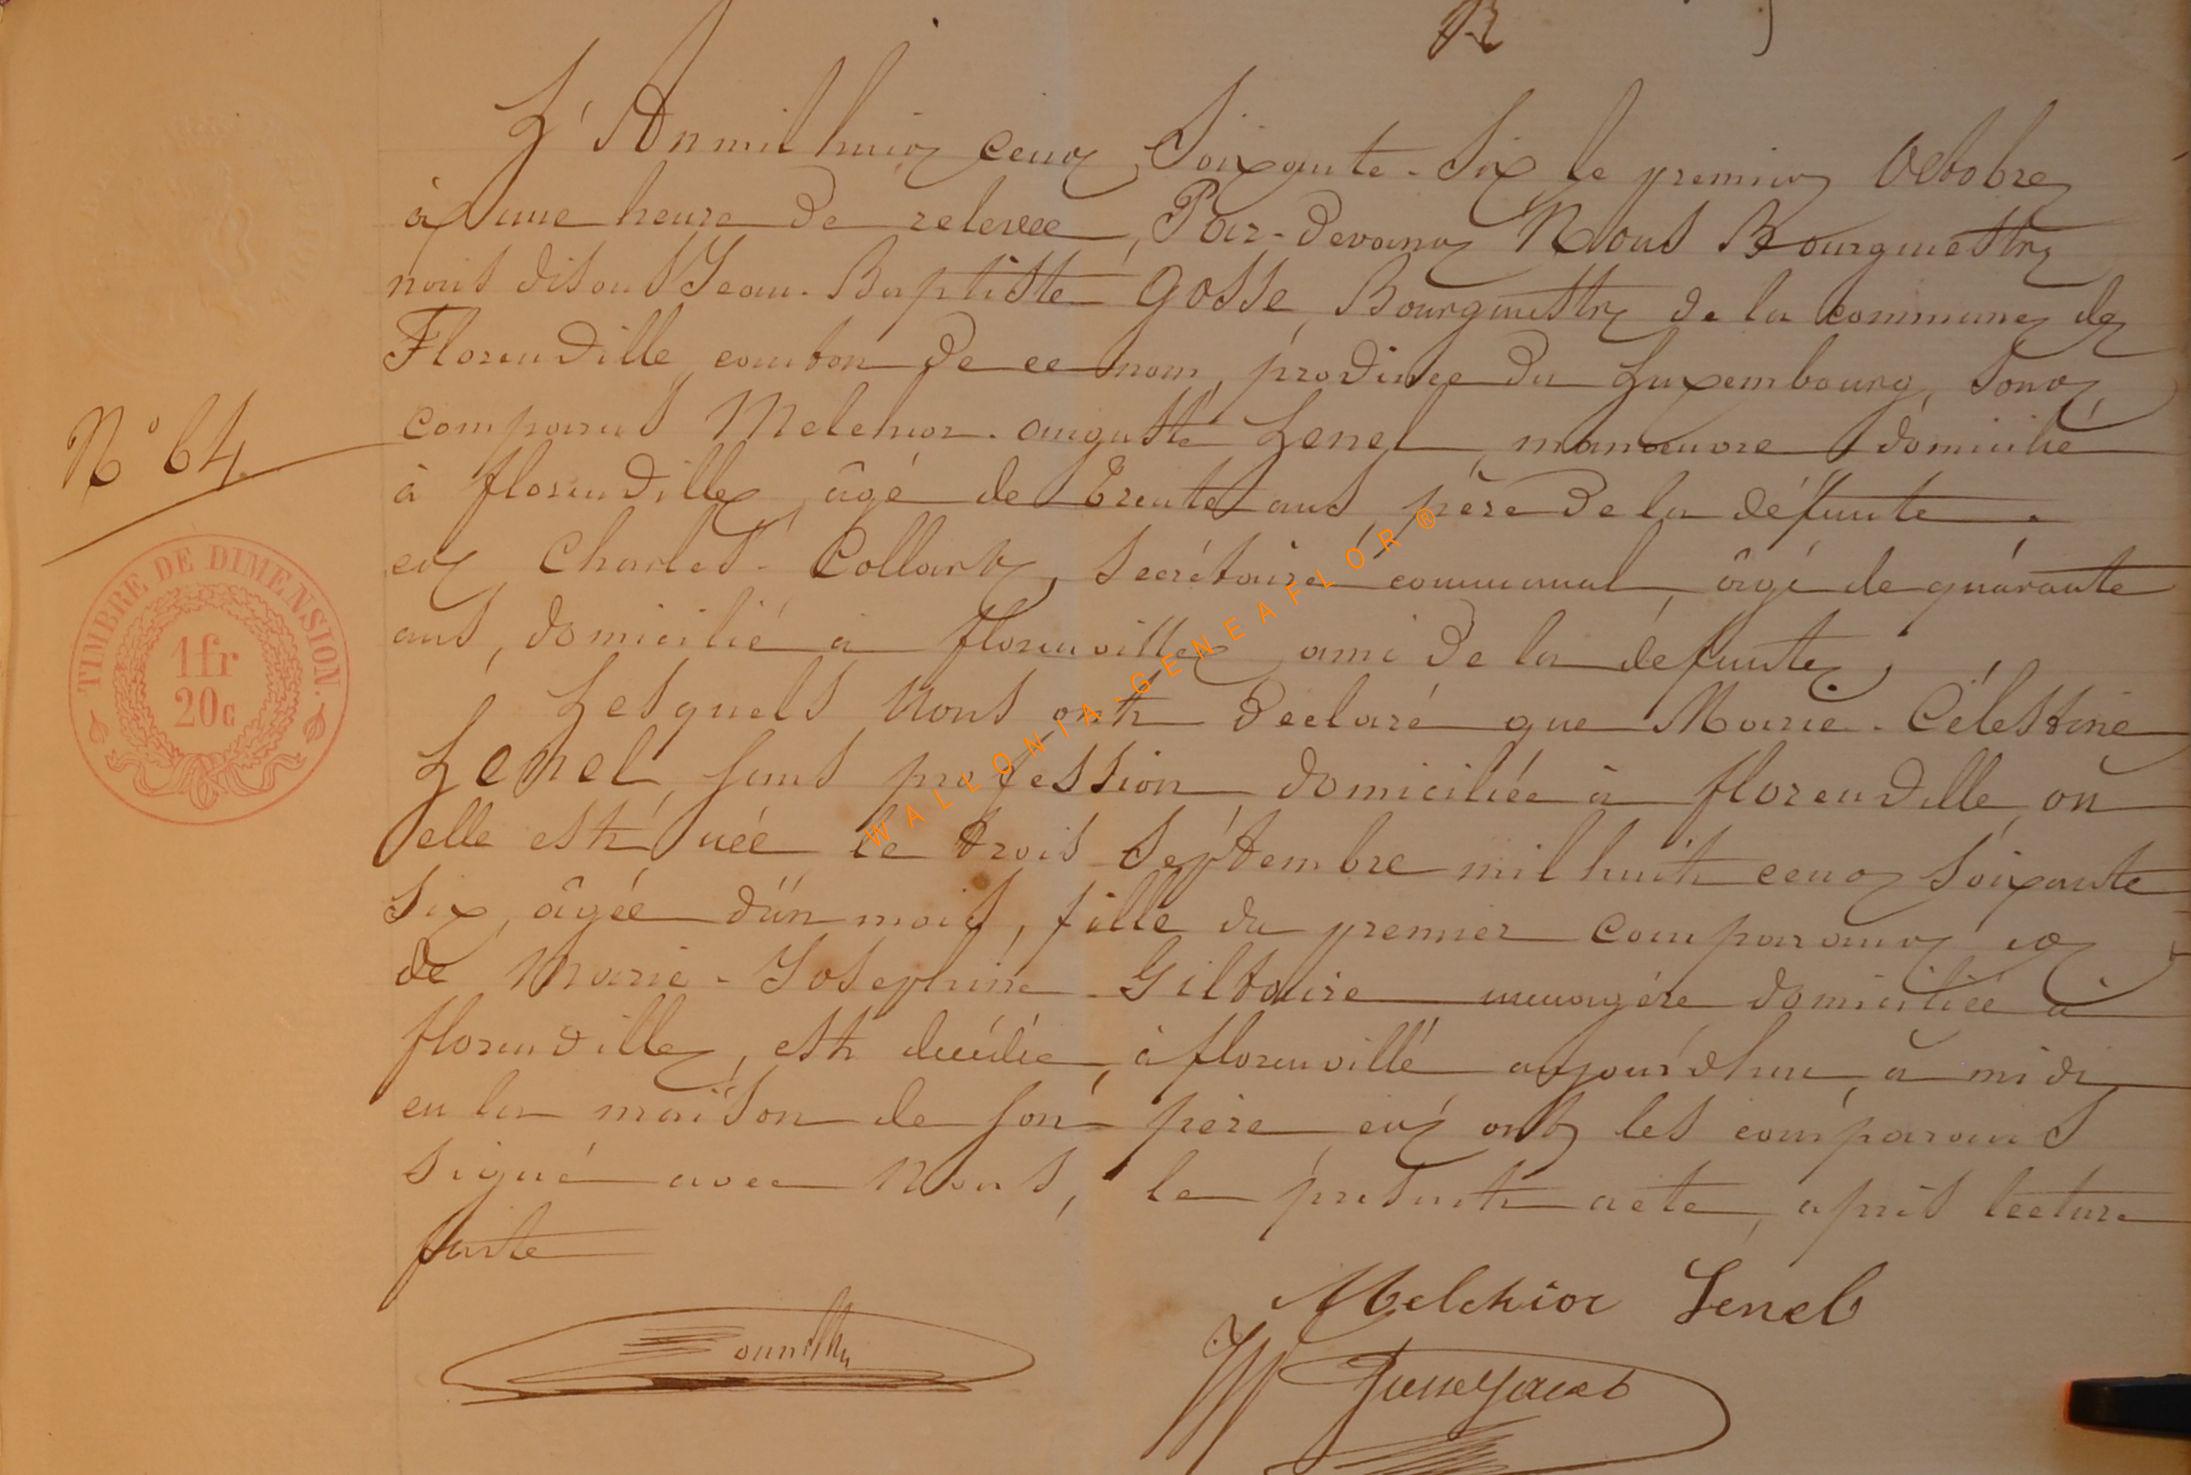 L'An mil huit cent Soixante-Six le premier Octobre
à une heure de relevée, Par-devant Nous Bourgmestre
nous disons Jean-Baptiste Gosse, Bourgmestre de la commune de
Florenville canton de ce nom, province du Luxembourg, sont
N° 64
comparus Melchior-auguste Lenel, manœuvre domicilié
à florenville, âgé de trente ans, père de la défunte.
et Charles Collart, Secrétaire communal, âgé de quarante
ans, domicilié à florenville, ami de la défunte,
Lesquels Nous ont déclaré que Marie-Célestine
Lenel, sans profession domiciliée à florenville, où
elle est née le trois Septembre mil huit cent Soixante
Six, âgée d'un mois, fille du premier comparant et
de Marie-Josephine Giltaire ménagère domiciliée à
florenville, est décédée, à florenville aujourd'hui, à midi
en la maison de son père, et ont les comparants
signé avec Nous, le présent acte, après lecture
faite
Melchior Lenel
TIMBRE DE DIMENSION.
1fr
20c
WALLONIA-GENEAFLOR®